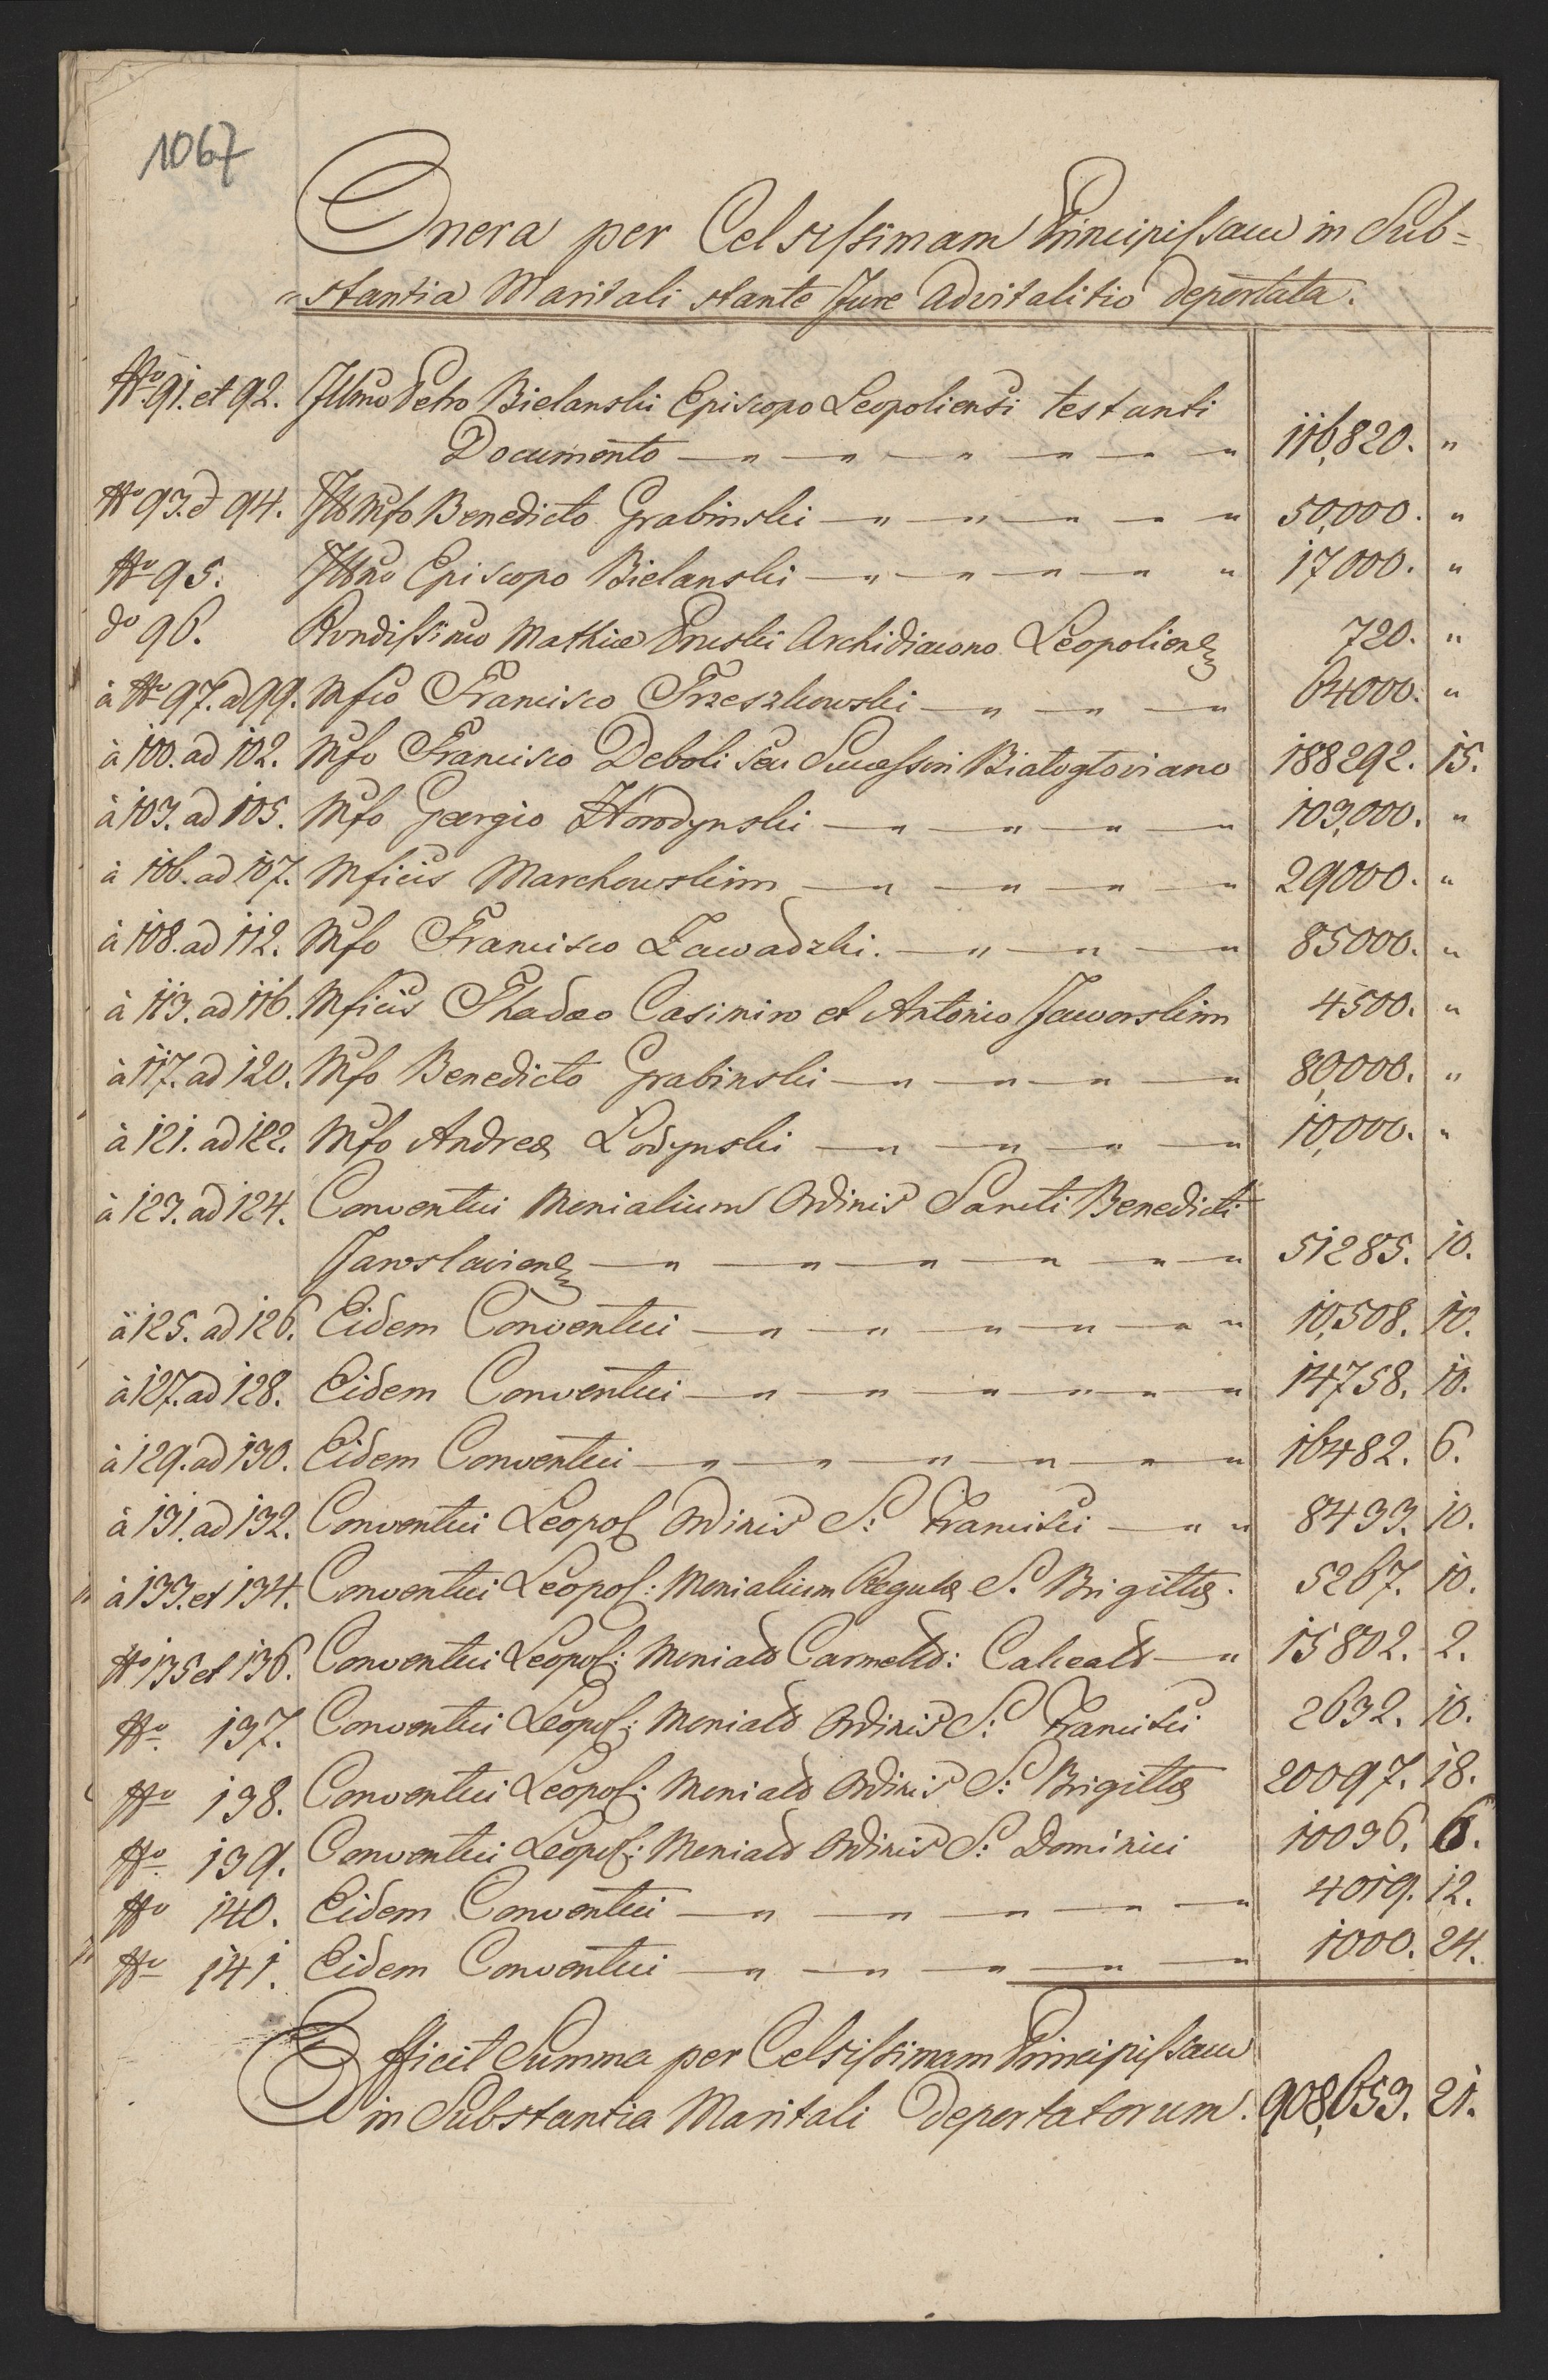 1067
Onera per Celsissimam Principissam in Sub=
"stantia Maritali stante Jure Advitalitio deportata.
Nro 91. et 92. Illmo Petro Bielanski Episcopo Leopoliensi testanti
Documento — " — " — " — " — " — " 116,820. "
Nro 93. & 94. Ill Mfo Benedicto Grabinski — " — " — " — " — " 50,000. "
Nro 95. Illmo Episcopo Bielanski — " — " — " — " " 17000. "
do 96. Rvndissimo Mathiæ Archidiacono Leopolien 720. "
à Nro 97. ad 99. Mfco Francisco Trzeszkowski — " — " — " 64000. "
à 100. ad 102. Mfo Francisco Deboli seu Sucessori Białogłoviano 188292. 15.
à 103. ad 105. Mfo Georgio Horodynski — " — " — " — " 103,000. "
à 106. ad 107. Mficis Marchowskim — " — " — " — " 29000. "
à 108. ad 112. Mfo Francisco Zawadzki. — " — " — " 85000. "
à 113. ad 116. Mficis Thadæo Casimiro et Antonio Jaworskim 4500. "
à 117. ad 120. Mfo Benedicto Grabinski — " — " — " — " 80,000. "
à 121. ad 122. Mfo Andreæ Łodynski — " — " — " — " 10,000. "
à 123. ad 124. Conventui Monialium Ordinis Sancti Benedicti
Jaroslavien — " — " — " — " — " — " 51285. 10.
à 125. ad 126. Eidem Conventui — " — " — " — " — " " 10,508. 10.
à 127. ad 128. Eidem Conventui — " — " — " — " — " — " 14758. 10.
à 129. ad 130. Eidem Conventui — " — " — " — " — " — " 16482. 6.
à 131. ad 132. Conventui Leopol Ordinis S: Francisci — " " 8433. 10.
à 133. et 134. Conventui Leopol: Monialium Regulæ S. Brigittæ. 5267. 10.
Nro 135 et 136. Conventui Leopol: Monial Carmelit: Calceat — " 15802. 2.
Nro 137. Conventui Leopol: Monial Ordinis S: Francisci 2632. 10.
Nro 138. Conventui Leopol: Monial Ordinis S: Brigittæ 20097. 18.
Nro 139. Conventui Leopol: Monial Ordinis S: Dominici 10036. 6.
Nro 140. Eidem Conventui — " — " — " — " — " 4019. 12.
Nro 141. Eidem Conventui — " — " — " — " — " 1000. 24.
Efficit Summa per Celsissimam Principissam
in Substantia Maritali deportatorum. 908,653. 21.